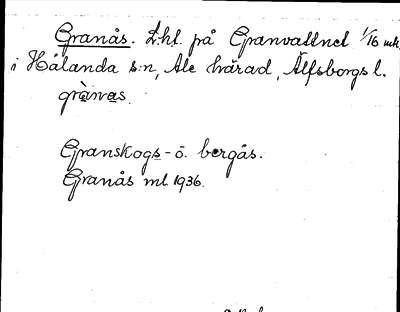 Granås. L:ht. på Granvattnet 1/16 mtl,
i Hålanda s:n, Ale härad, Älfsborgs l.
grànas.
Granskogs- o. bergås.
Granås ml 1936.